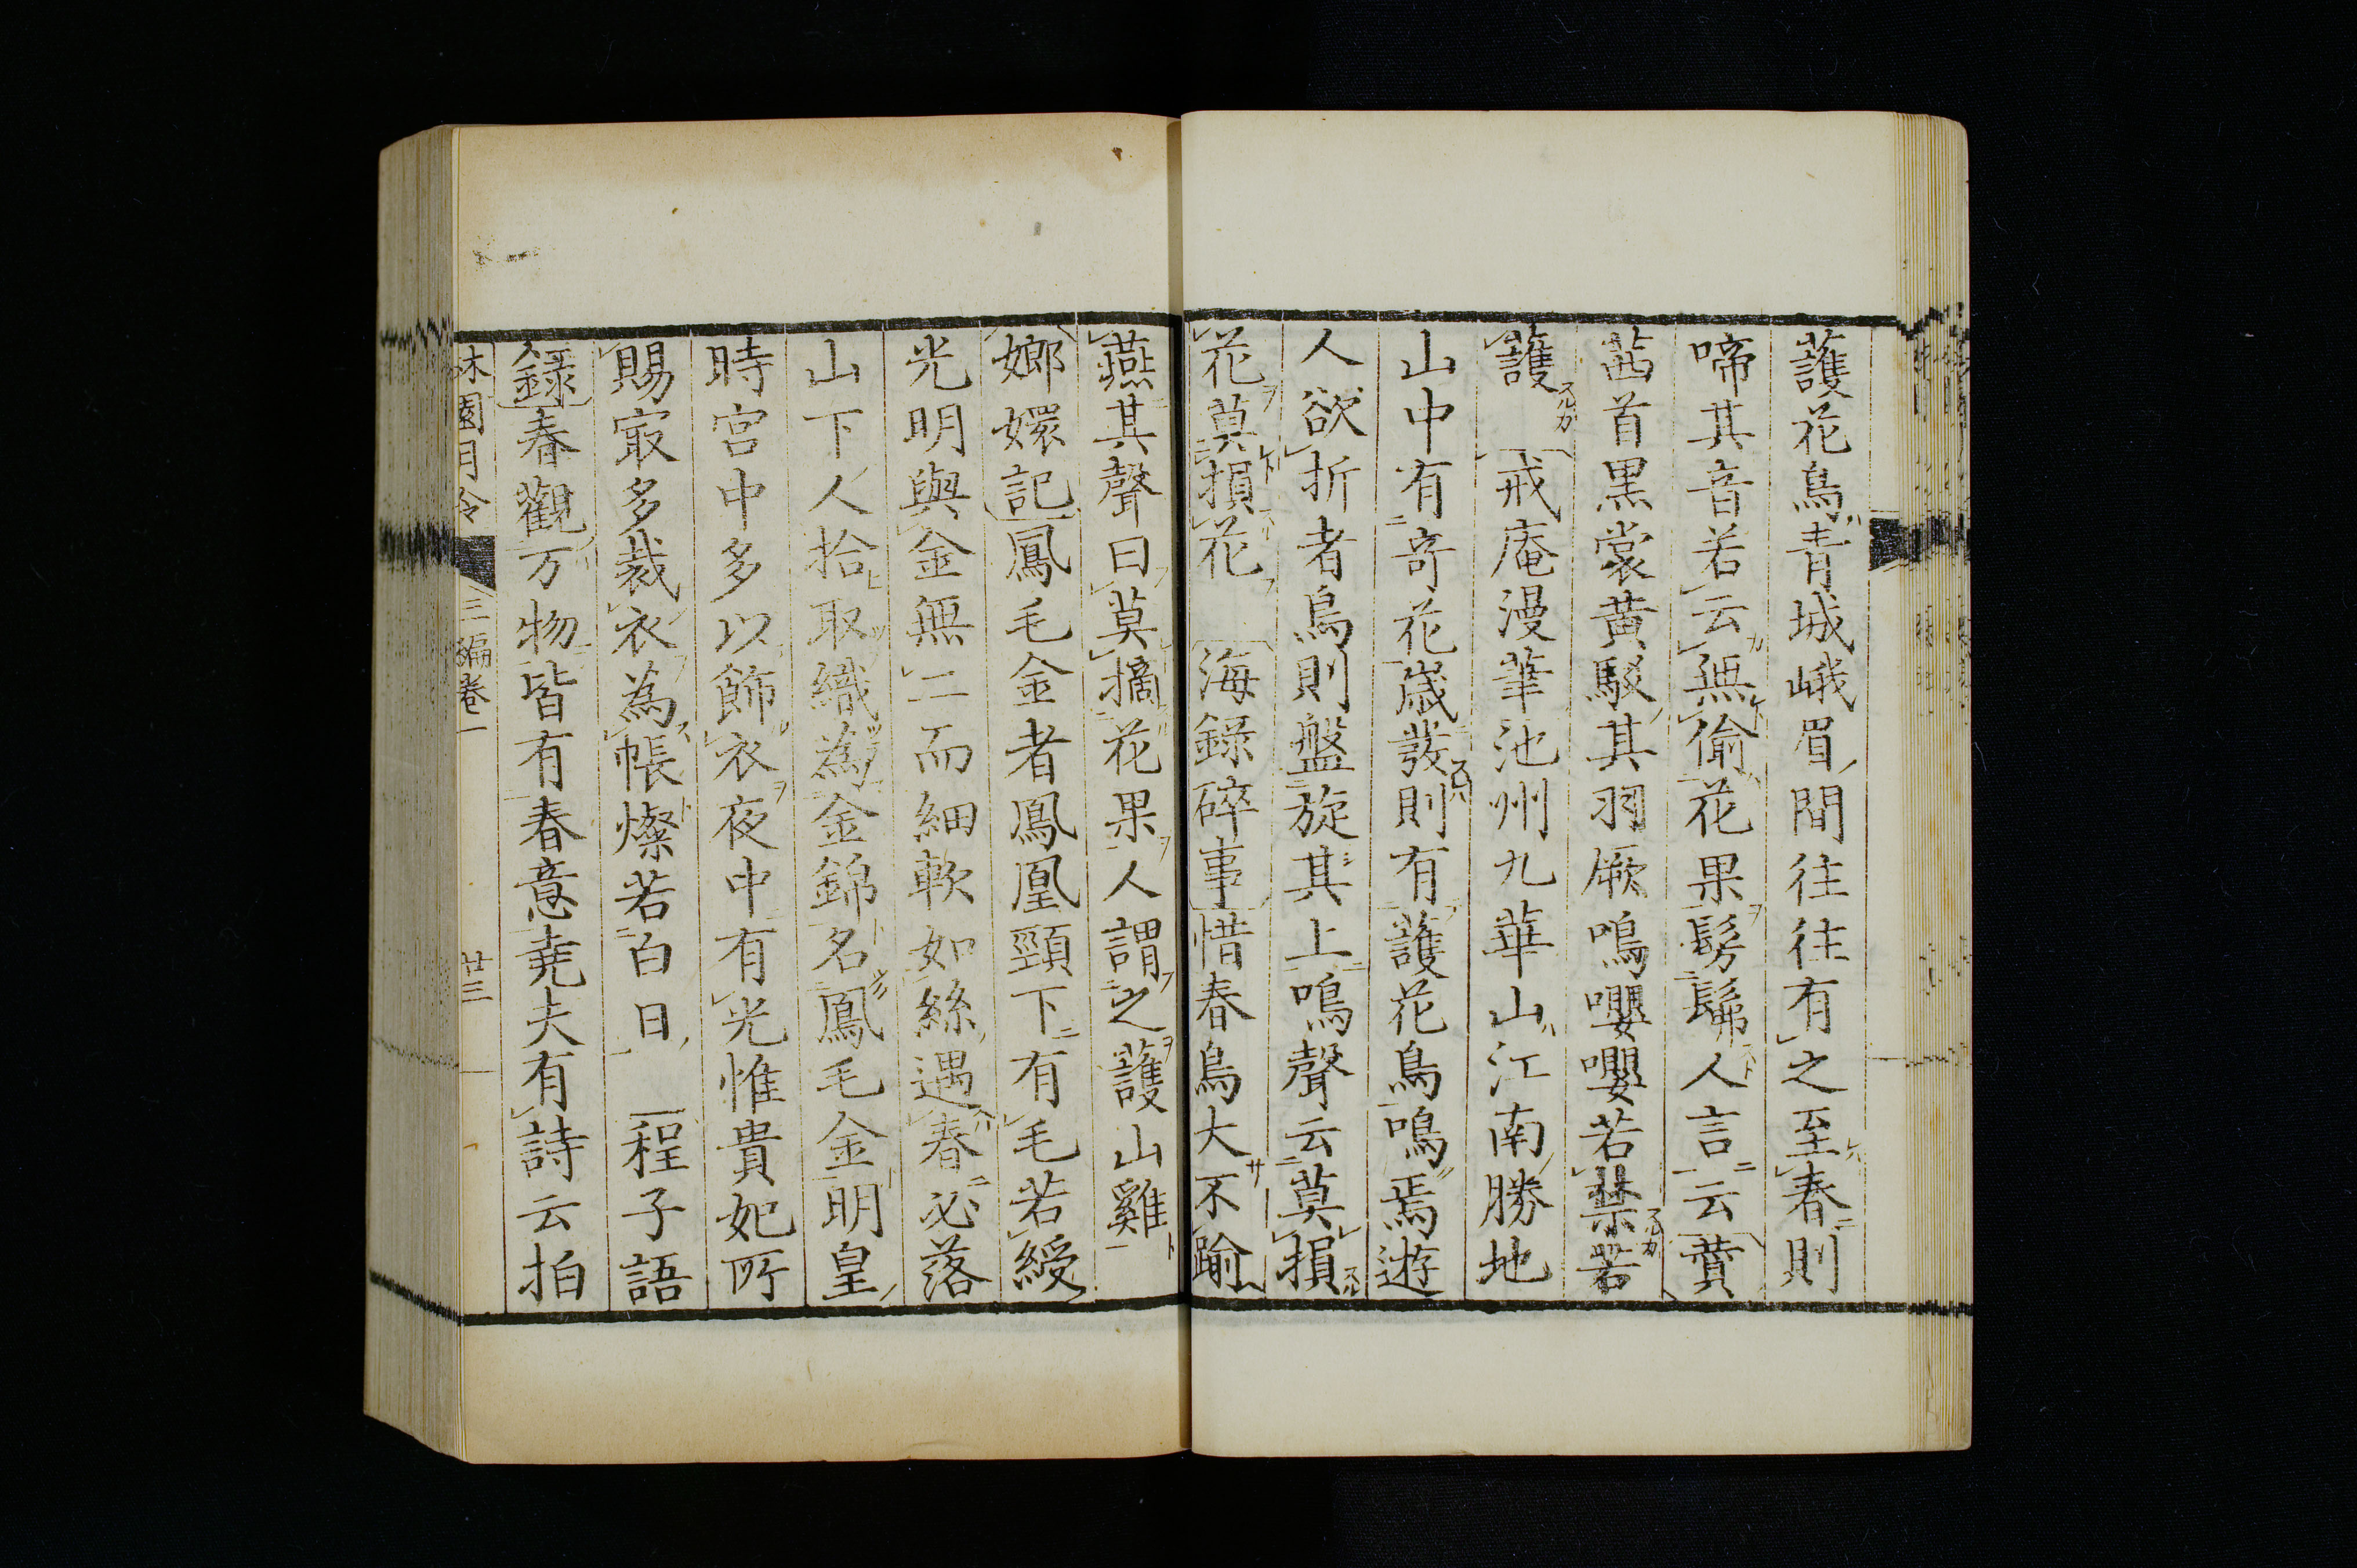 護花鳥青城峨眉間往往有之至春則
啼其音若云無偷花果髣髴人言云蕡
茜首黒裳黄駁其羽厥鳴嚶嚶若禁若
護 戒庵漫筆池州九華山江南勝地
山中有奇花歳發則有護花鳥鳴焉遊
人欲折者鳥則盤旋其上鳴聲云莫損
花莫損花 海錄碎事惜春鳥大不踰
燕其聲曰莫摘花果人謂之護山雞
嫏嬛記鳳毛金者鳳凰頸下有毛若綬
光明與金無二而細軟如絲遇春必落
山下人拾取織為金錦名鳳毛金明皇
時宮中多以飾衣夜中有光惟貴妃所
賜㝡多裁衣為帳燦若白日 程子語
錄春觀万物皆有春意堯夫有詩云拍
休園月令 三編卷一 廿三